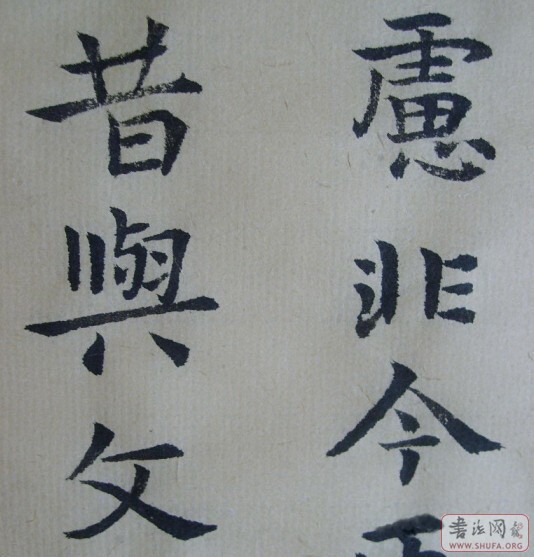 慮非今
昔與文
书法网
WWW.SHUFA.ORG